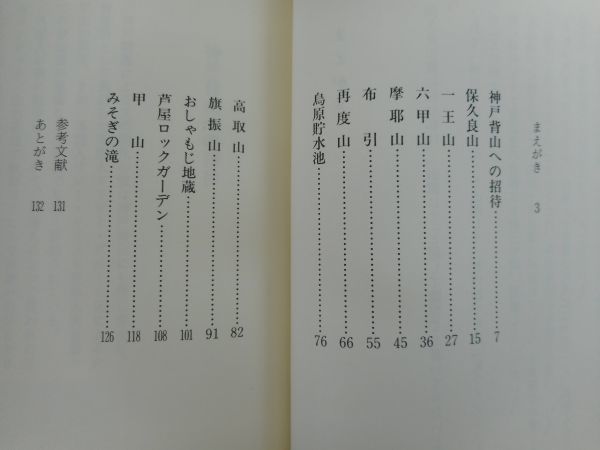 まえがき 3
神戸背山への招待……………………7
保久良山……………………15
一王山……………………27
六甲山……………………36
摩耶山……………………45
布引……………………55
再度山……………………66
烏原貯水池……………………76
高取山……………………82
旗振山……………………91
おしゃもじ地蔵……………………101
芦屋ロックガーデン……………………108
甲山……………………118
みそぎの滝……………………126
参考文献 131
あとがき 132